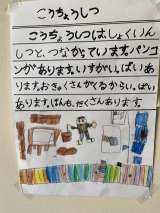 こうちょうしつ
こうちょうしつはしょくいん
しつと、つながっています。パソコ
ンがあります。いすがい。ぱいあ
ります。おきゃくさんがくるからい。ぱい
あります。ほんも、たくさんあります。